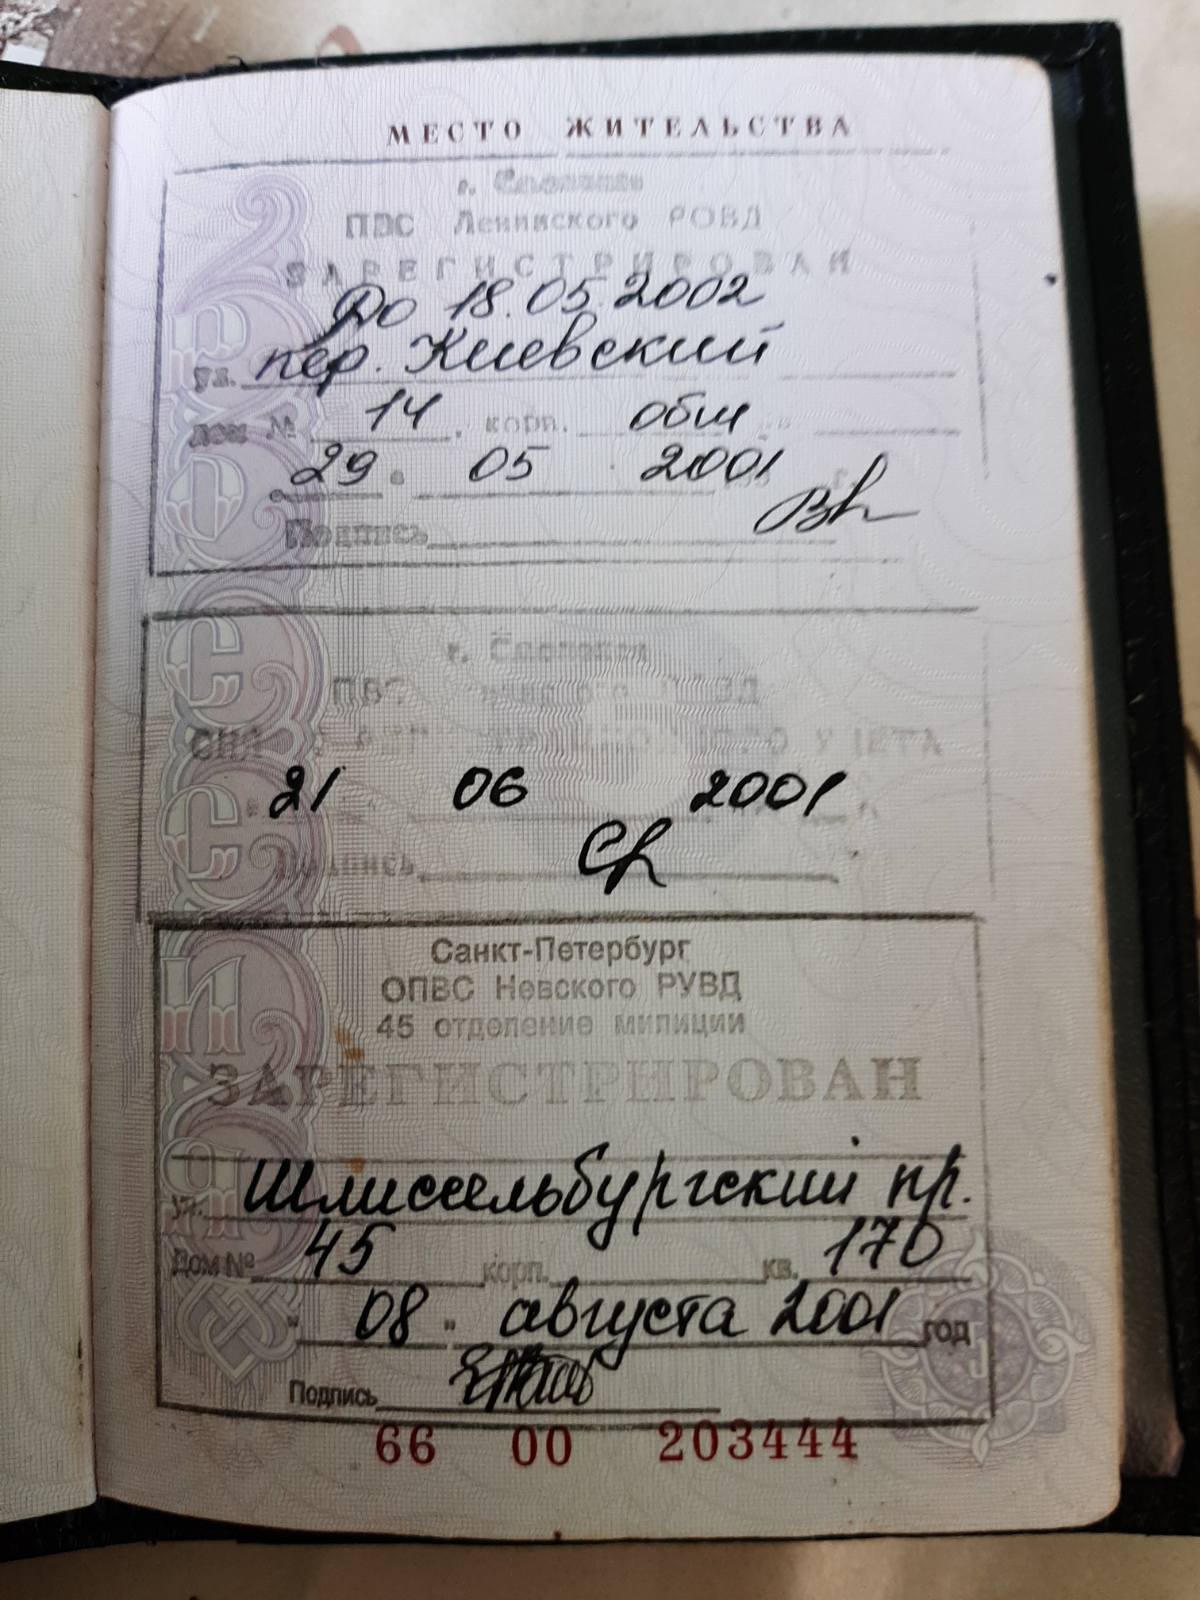 МЕСТО ЖИТЕЛЬСТВА
г.
ПВС Ленинского РОВД
ЗАРЕГИСТРИРОВАН
До 18.05.2002
ул. пер. Киевский
дом № 14, корп. общ
29 " 05 2001
Подпись
г.
21 06 2001
Подпись
Санкт-Петербург
ОПВС Невского РУВД
45 отделение милиции
ЗАРЕГИСТРИРОВАН
ул. Шлиссельбургский пр.
Дом № 45 корп. кв. 170
" 08 " августа 2001 год
Подпись
66 00 203444